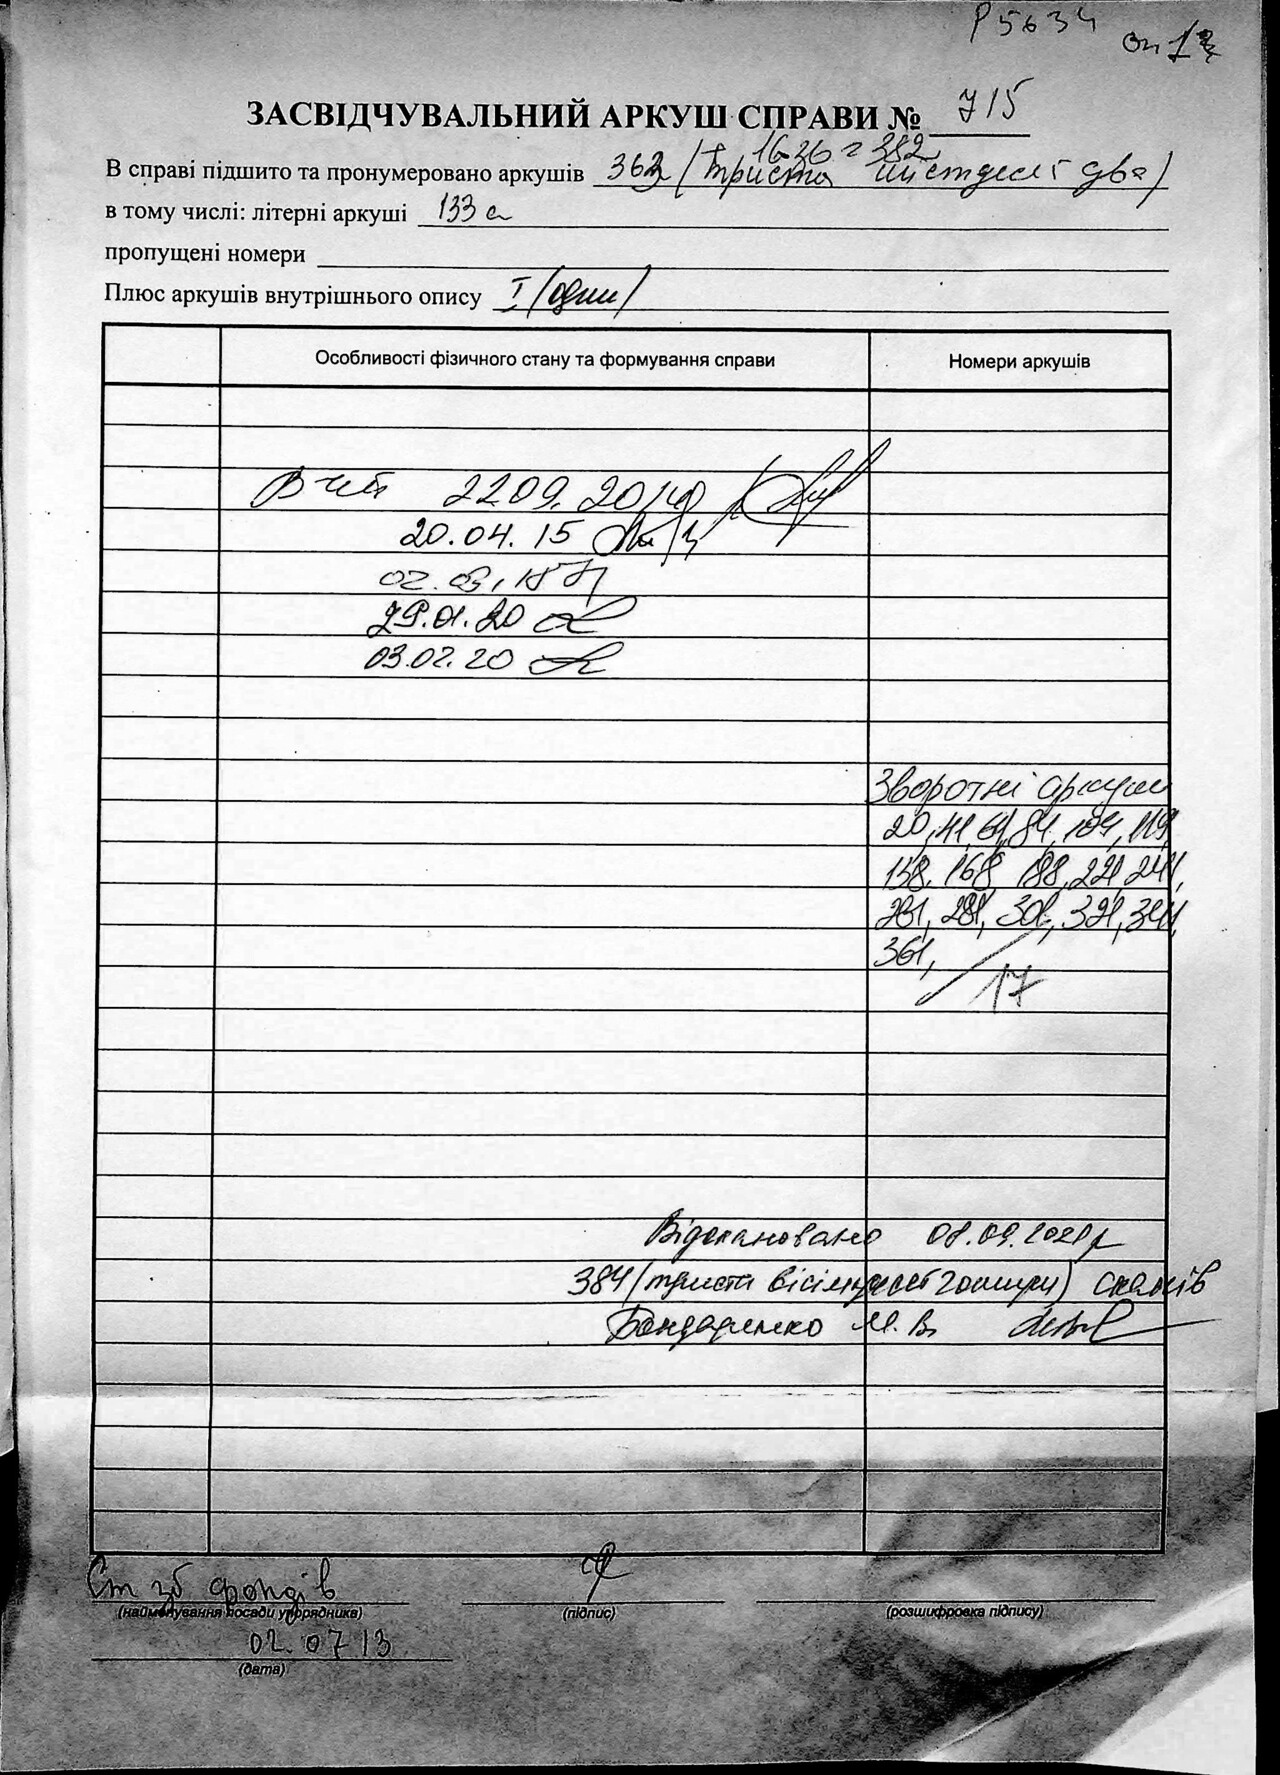 Р5634 оп 1
ЗАСВІДЧУВАЛЬНИЙ АРКУШ СПРАВИ № 715
В справі підшито та пронумеровано аркушів 362 (триста шістдесят два)
в тому числі: літерні аркуші 133а
пропущені номери
Плюс аркушів внутрішнього опису 1 (один)
Особливості фізичного стану та формування справи
Номери аркушів
22.09.2014
20.04.15
29.01.20
03.02.20
Зворотні аркуші
20, 41, 61, 84, 104, 119,
138, 168, 188, 221, 241,
261, 281, 301, 321, 341,
361,
17
Відскановано 08.09.2021р
384 (триста вісімдесят чотири) сканів
Бондаренко М. В.
Ст зб фондів
(найменування посади упорядника)
(підпис)
(розшифровка підпису)
02.07 13
(дата)